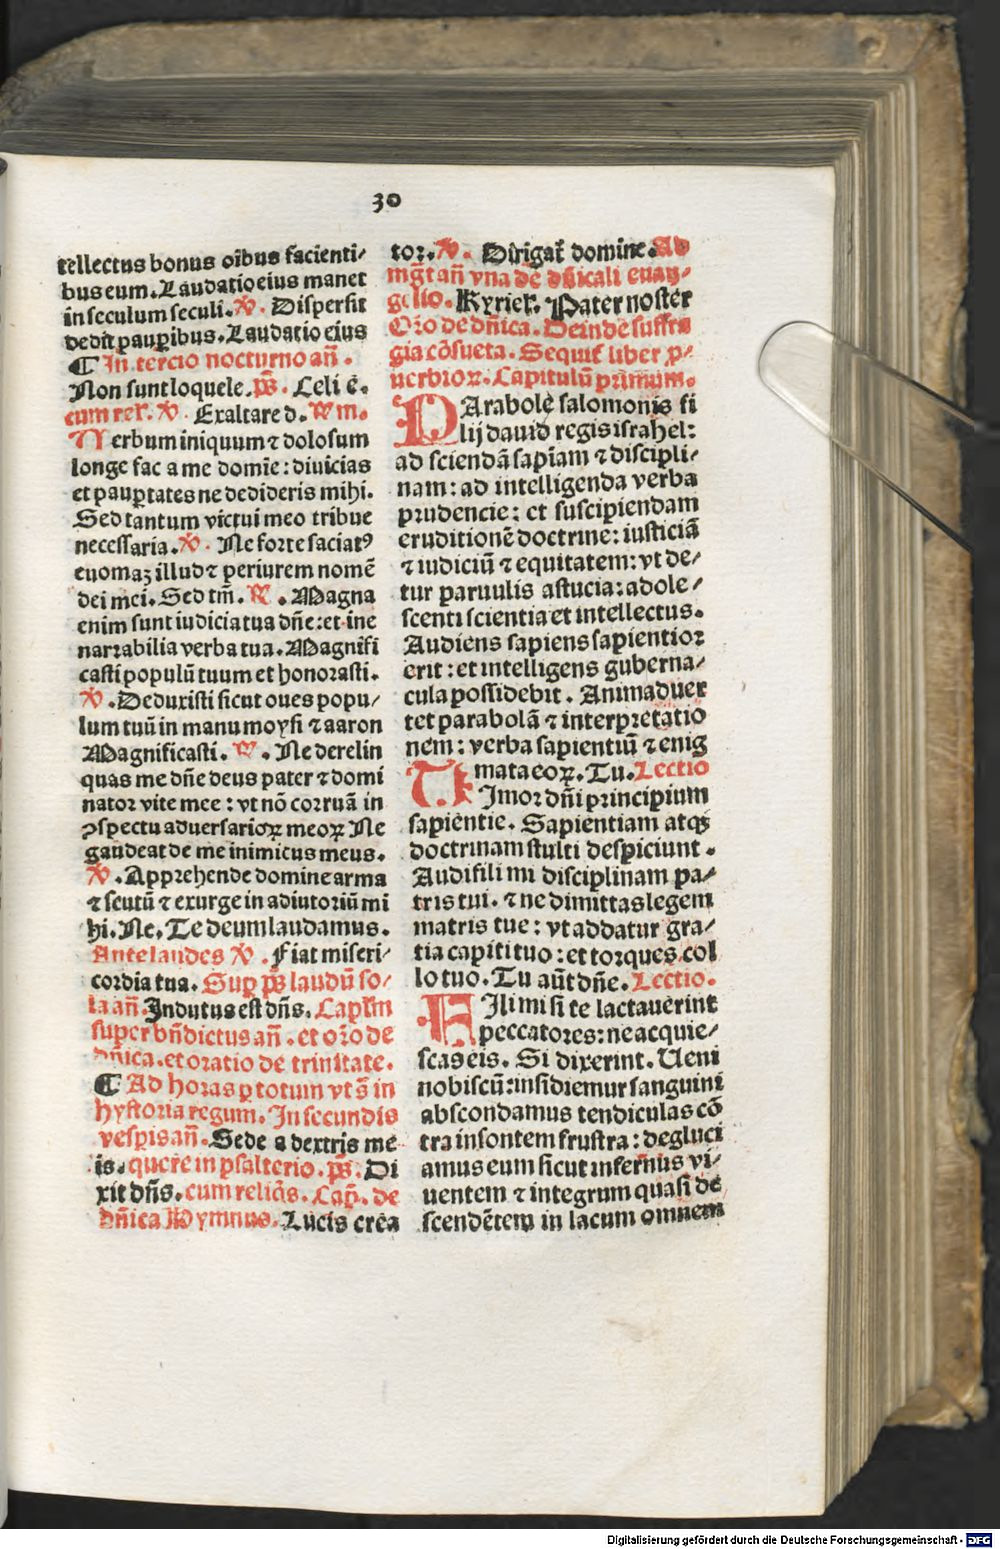 30
tellectus bonus oībus facienti⸗
bus eum. Laudatio eius manet
in seculum seculi. ℣. Dispersit
dedit pauꝑibus. Laudatio eius
¶ In tercio nocturno añ.
Non sunt loquele. p̄s. Celi ē.
cum rel̄. ℣. Exaltare d. ℞ m.
Verbum iniquum ⁊ dolosum
longe fac a me domīe: diuicias
et pauꝑtates ne dedideris mihi.
Sed tantum victui meo tribue
necessaria. ℣. Ne forte saciatꝰ
euomaz illud ⁊ periurem nomē
dei mei. Sed tm̄. ℞. Magna
enim sunt iudicia tua dñe: et ine
narrabilia verba tua. Magnifi
casti populū tuum et honorasti.
℣. Deduxisti sicut oues popu⸗
lum tuū in manu moysi ⁊ aaron
Magnificasti. ℞. Ne derelin
quas me dñe deus pater ⁊ domi
nator vite mee: vt nō corruā in
ꝯspectu aduersarioꝝ meoꝝ Ne
gaudeat de me inimicus meus.
℣. Apprehende domine arma
⁊ scutū ⁊ exurge in adiutoriū mi
hi. Ne. Te deum laudamus.
Ante laudes ℣. Fiat miseri⸗
cordia tua. Suꝑ p̄s laudū so⸗
la añ. Indutus est dñs. Capl̄m
super bñdictus añ. et oro de
dñica. et oratio de trinitate.
¶ Ad horas ꝑ totum vt s̄ in
hystoria regum. In secundis
vesꝑis añ. Sede a dextris me
is. quere in psalterio. p̄s. Di
xit dñs. cum reliq̄s. Cap̄. de
dñica Hymnus. Lucis crea
tor. ℣. Dirigat̄ domine. Ad
mg̅t añ vna de dñicali euan⸗
gelio. Kyriel̄. Pater noster
Oro de dñica. Deinde suffra
gia cōsueta. Sequit̄ liber ꝓ⸗
uerbioꝝ. Capitulū primum.
PArabole salomonis fi
lij dauid regis israhel:
ad sciendā sapiam ⁊ discipli⸗
nam: ad intelligenda verba
prudencie: et suscipiendam
eruditionē doctrine: iusticiā
⁊ iudiciū ⁊ equitatem: vt de⸗
tur paruulis astucia: adole⸗
scenti scientia et intellectus.
Audiens sapiens sapientior
erit: et intelligens guberna⸗
cula possidebit. Animaduer
tet parabolā ⁊ interpretatio
nem: verba sapientiū ⁊ enig
mata eoꝝ. Tu. Lectio
TImor dñi principium
sapientie. Sapientiam atqꝫ
doctrinam stulti despiciunt.
Audi fili mi disciplinam pa⸗
tris tui. ⁊ ne dimittas legem
matris tue: vt addatur gra⸗
tia capiti tuo: et torques col
lo tuo. Tu aūt dñe. Lectio.
FIli mi si te lactauerint
peccatores: ne acquie⸗
scas eis. Si dixerint. Ueni
nobiscū: insidiemur sanguini
abscondamus tendiculas cō
tra insontem frustra: degluci
amus eum sicut infernus vi⸗
uentem ⁊ integrum quasi de
scendētem in lacum omnem
Digitalisierung gefördert durch die Deutsche Forschungsgemeinschaft - DFG